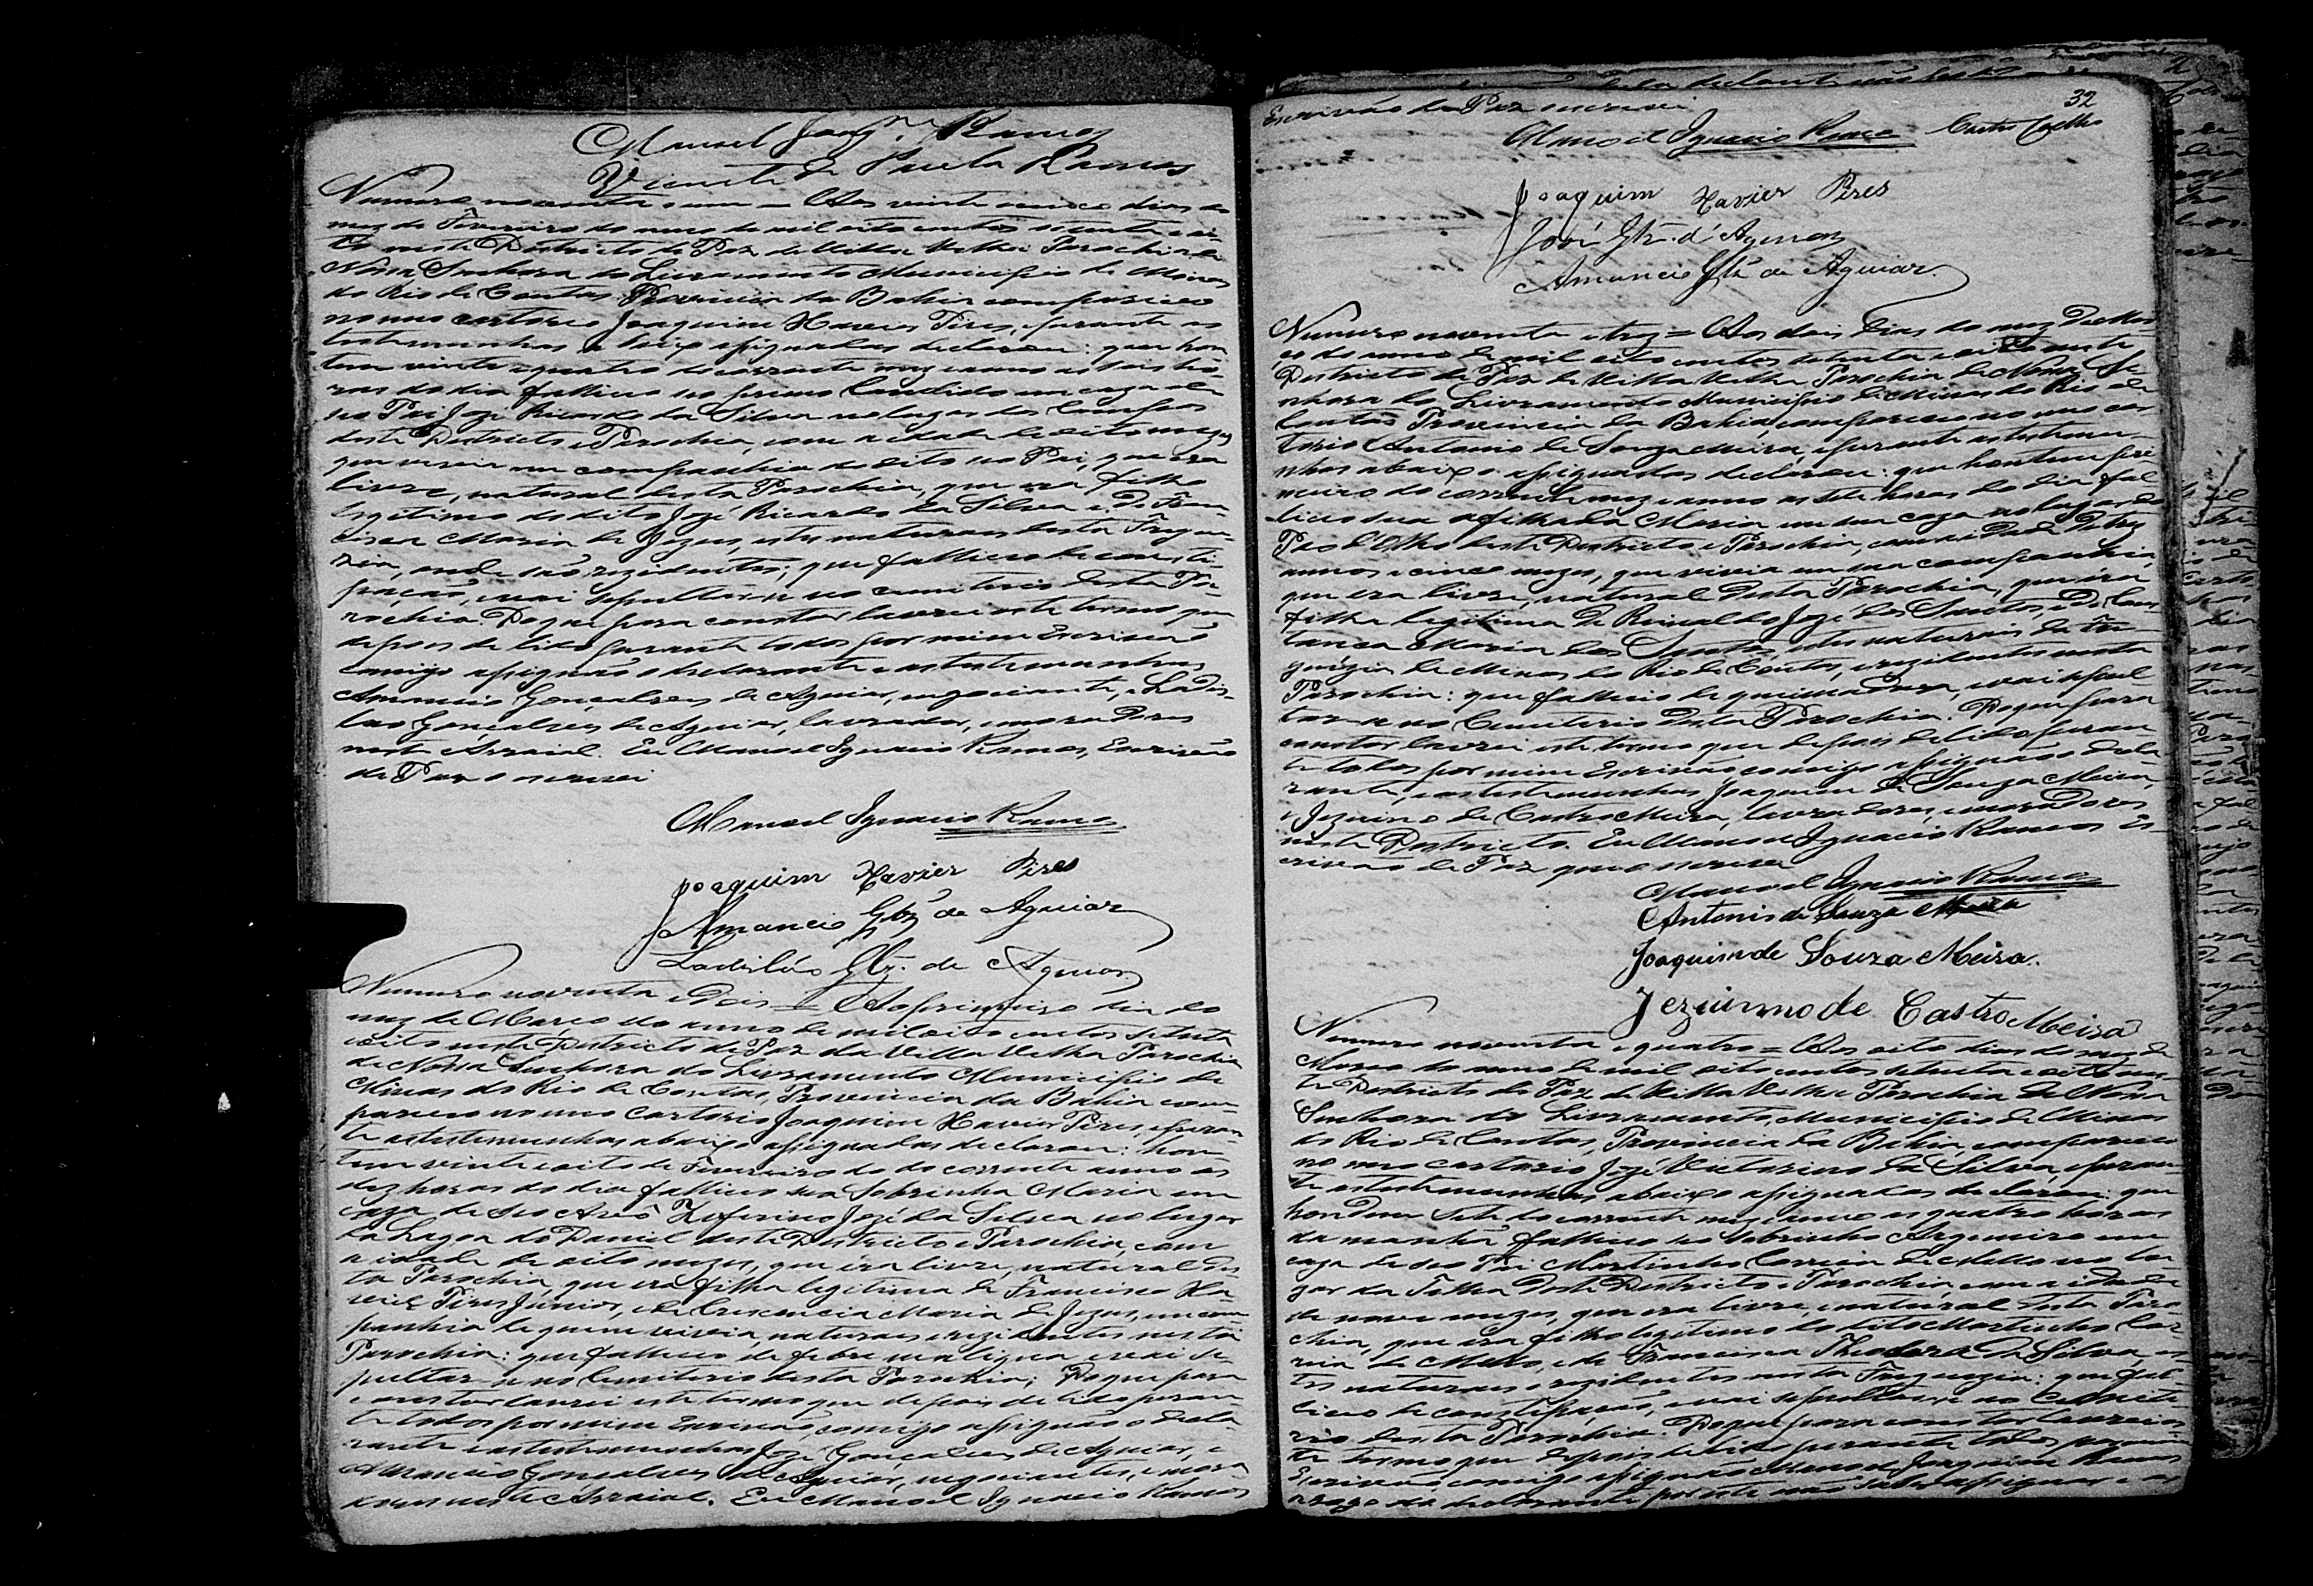 Manoel Joaqm. Ramos
Vicente de Paula Ramos
Numero noventa e um = Aos vinte e cinco dias do
mez de Fevereiro do anno de mil oito centos setenta e oi-
to neste Districto de Paz de Villa Velha Parochia de
Nossa Senhora do Livramento Municipio de Minas
do Rio de Contas Provincia da Bahia compareceo
no meo cartorio Joaquim Xavier Pires, e perante as
testemunhas abaixo assignadas declarou: que hon
tem vinte e quatro do corrente mez e anno as seis ho-
ras do dia falleceo seo primo Candido em caza de
seo Pai Jozé Ricardo da Silva no lugar dos Campos
deste Districto e Parochia, com a idade de oito mezes
que vivia em companhia do dito seo Pai, que era
livre, natural desta Parochia, que era filho
legitimo do dito Jozé Ricardo da Silva e de Fran
cisca Maria de Jezus, estes naturaes desta Fregue-
zia, onde são rezidentes; que falleceo de consti-
pação, e vai sepultar-se no cemiterio desta Pa-
rochia. Do que para constar lavrei este termo que
depois de lido perante todos por mim Escrivão
comigo assignão o declarante e as testemunhas
Amancio Gonçalves de Aguiar, negociante, e Ladis-
lao Gonçalves de Aguiar, lavrador, e moradores
neste Arraial. Eu Manoel Ignacio Ramos, Escrivão
de Paz o escrevi
Manoel Ignacio Ramos
Joaquim Xavier Pires
Amancio Glz de Aguiar
Ladisláo Glz. de Aguiar
Numero noventa e dois = Ao primeiro dia do
mez de Março do anno de mil oito centos setenta
e oito neste Districto de Paz da Villa Velha Parochia
de Nossa Senhora do Livramento Municipio de
Minas do Rio de Contas, Provincia da Bahia com-
pareceo no meo Cartorio Joaquim Xavier Pires, e peran-
te as testemunhas abaixo assignadas declarou: hon-
tem vinte e oito de Fevereiro do do corrente anno as
dez horas do dia falleceo sua Sobrinha Maria em
caza de seo Avô Zeferino Jozé da Silva no lugar
da Lagoa do Daniel deste Districto e Parochia, com
a idade de oito mezes, que éra livre, natural des-
ta Parochia, que era filha legitima de Francisco Xa-
vier Pires Junior, e de Crescencia Maria de Jezus, em com
panhia de quem vivia, naturaes e rezidentes nesta
Parochia: que falleceo de febre maligna e vai se-
pultar-se no Cemiterio desta Parochia; Do que para
constar lavrei este termo que depois de lido peran-
te todos por mim Escrivão, comigo assignão o decla-
rante e as testemunhas Jozé Gonçalves de Aguiar, e
Amancio Gonçalves de Aguiar, negociantes, e mora
dores neste Arraial. Eu Manoel Ignacio Ramos
32
Escrivão de Paz o escrevi
Manoel Ignacio Ramos Castro Coelho
Joaquim Xavier Pires
José Glz. d'Aguiar
Amancio Glz de Aguiar
Numero noventa e trez = Aos dois dias do mez de Mar-
ço do anno de mil oito centos setenta e oito neste
Districto de Paz de Villa Velha Parochia de Nossa Se-
nhora do Livramento Municipio de Minas do Rio de
Contas Provincia da Bahia, compareceo no meo car
torio Antonio de Souza Meira, e perante as testemu-
nhas abaixo assignadas declarou: que hontem pri
meiro do corrente mez e anno as sete horas do dia fal
leceo sua afilhada Maria em sua caza no lugar do
Páo d'Olho deste Districto e Parochia, com a idade de trez
annos e cinco mezes, que vivia em sua companhia,
que era livre, natural desta Parochia, que éra
filha legitima de Rinaldo Jozé dos Santos, e de Cons
tança Maria dos Santos, estes naturais da Fre-
guezia de Minas do Rio de Contas, e rezidentes nesta
Parochia: que falleceo de queimadura, e vai sepul
tar-se no Cemiterio desta Parochia. Do que para
constar lavrei este termo que depois de lido peran
te todos por mim Escrivão comigo assignão o decla-
rante, e as testemunhas Joaquim de Souza Meira,
e Jezuino de Castro Meira, lavradores, e moradores
neste Districto. Eu Manoel Ignacio Ramos Es-
crivão de Paz que o escrevi
Manoel Ignacio Ramos
Antonio de Souza Meira
Joaquim de Souza Meira.
Jezuinno de Castro Meira
Numero noventa e quatro = Aos oito dias do mez de
Março do anno de mil oito centos setenta e oito nes-
te Districto de Paz de Villa Velha Parochia de Nossa
Senhora do Livramento, Municipio de Minas
do Rio de Contas, Provincia da Bahia, compareceo
no meo cartorio Jozé Victorino da Silva, e peran
te as testemunhas abaixo assignadas declarou: que
hontem sete do corrente mez e anno as quatro horas
da manhã falleceo seo Sobrinho Argemiro em
caza de seo Pai Martinho Correia de Mello no lu-
gar da Telha deste Districto e Parochia, com a idade
de nove mezes, que era livre, e natural desta Paro
chia, que éra filho legitimo do dito Martinho Cor-
reia de Mello, e de Francisca Theodora da Silva, es
tes naturaes e rezidentes nesta Freguezia: que fal-
leceo de constipação, e vai sepultar-se no Cemite-
rio desta Parochia. Do que para constar lavrei es-
te termo que depois de lido perante todos por mim
Escrivão comigo assignão Manoel Joaquim Ramos
a rogo do declarante por este não saber assignar e as